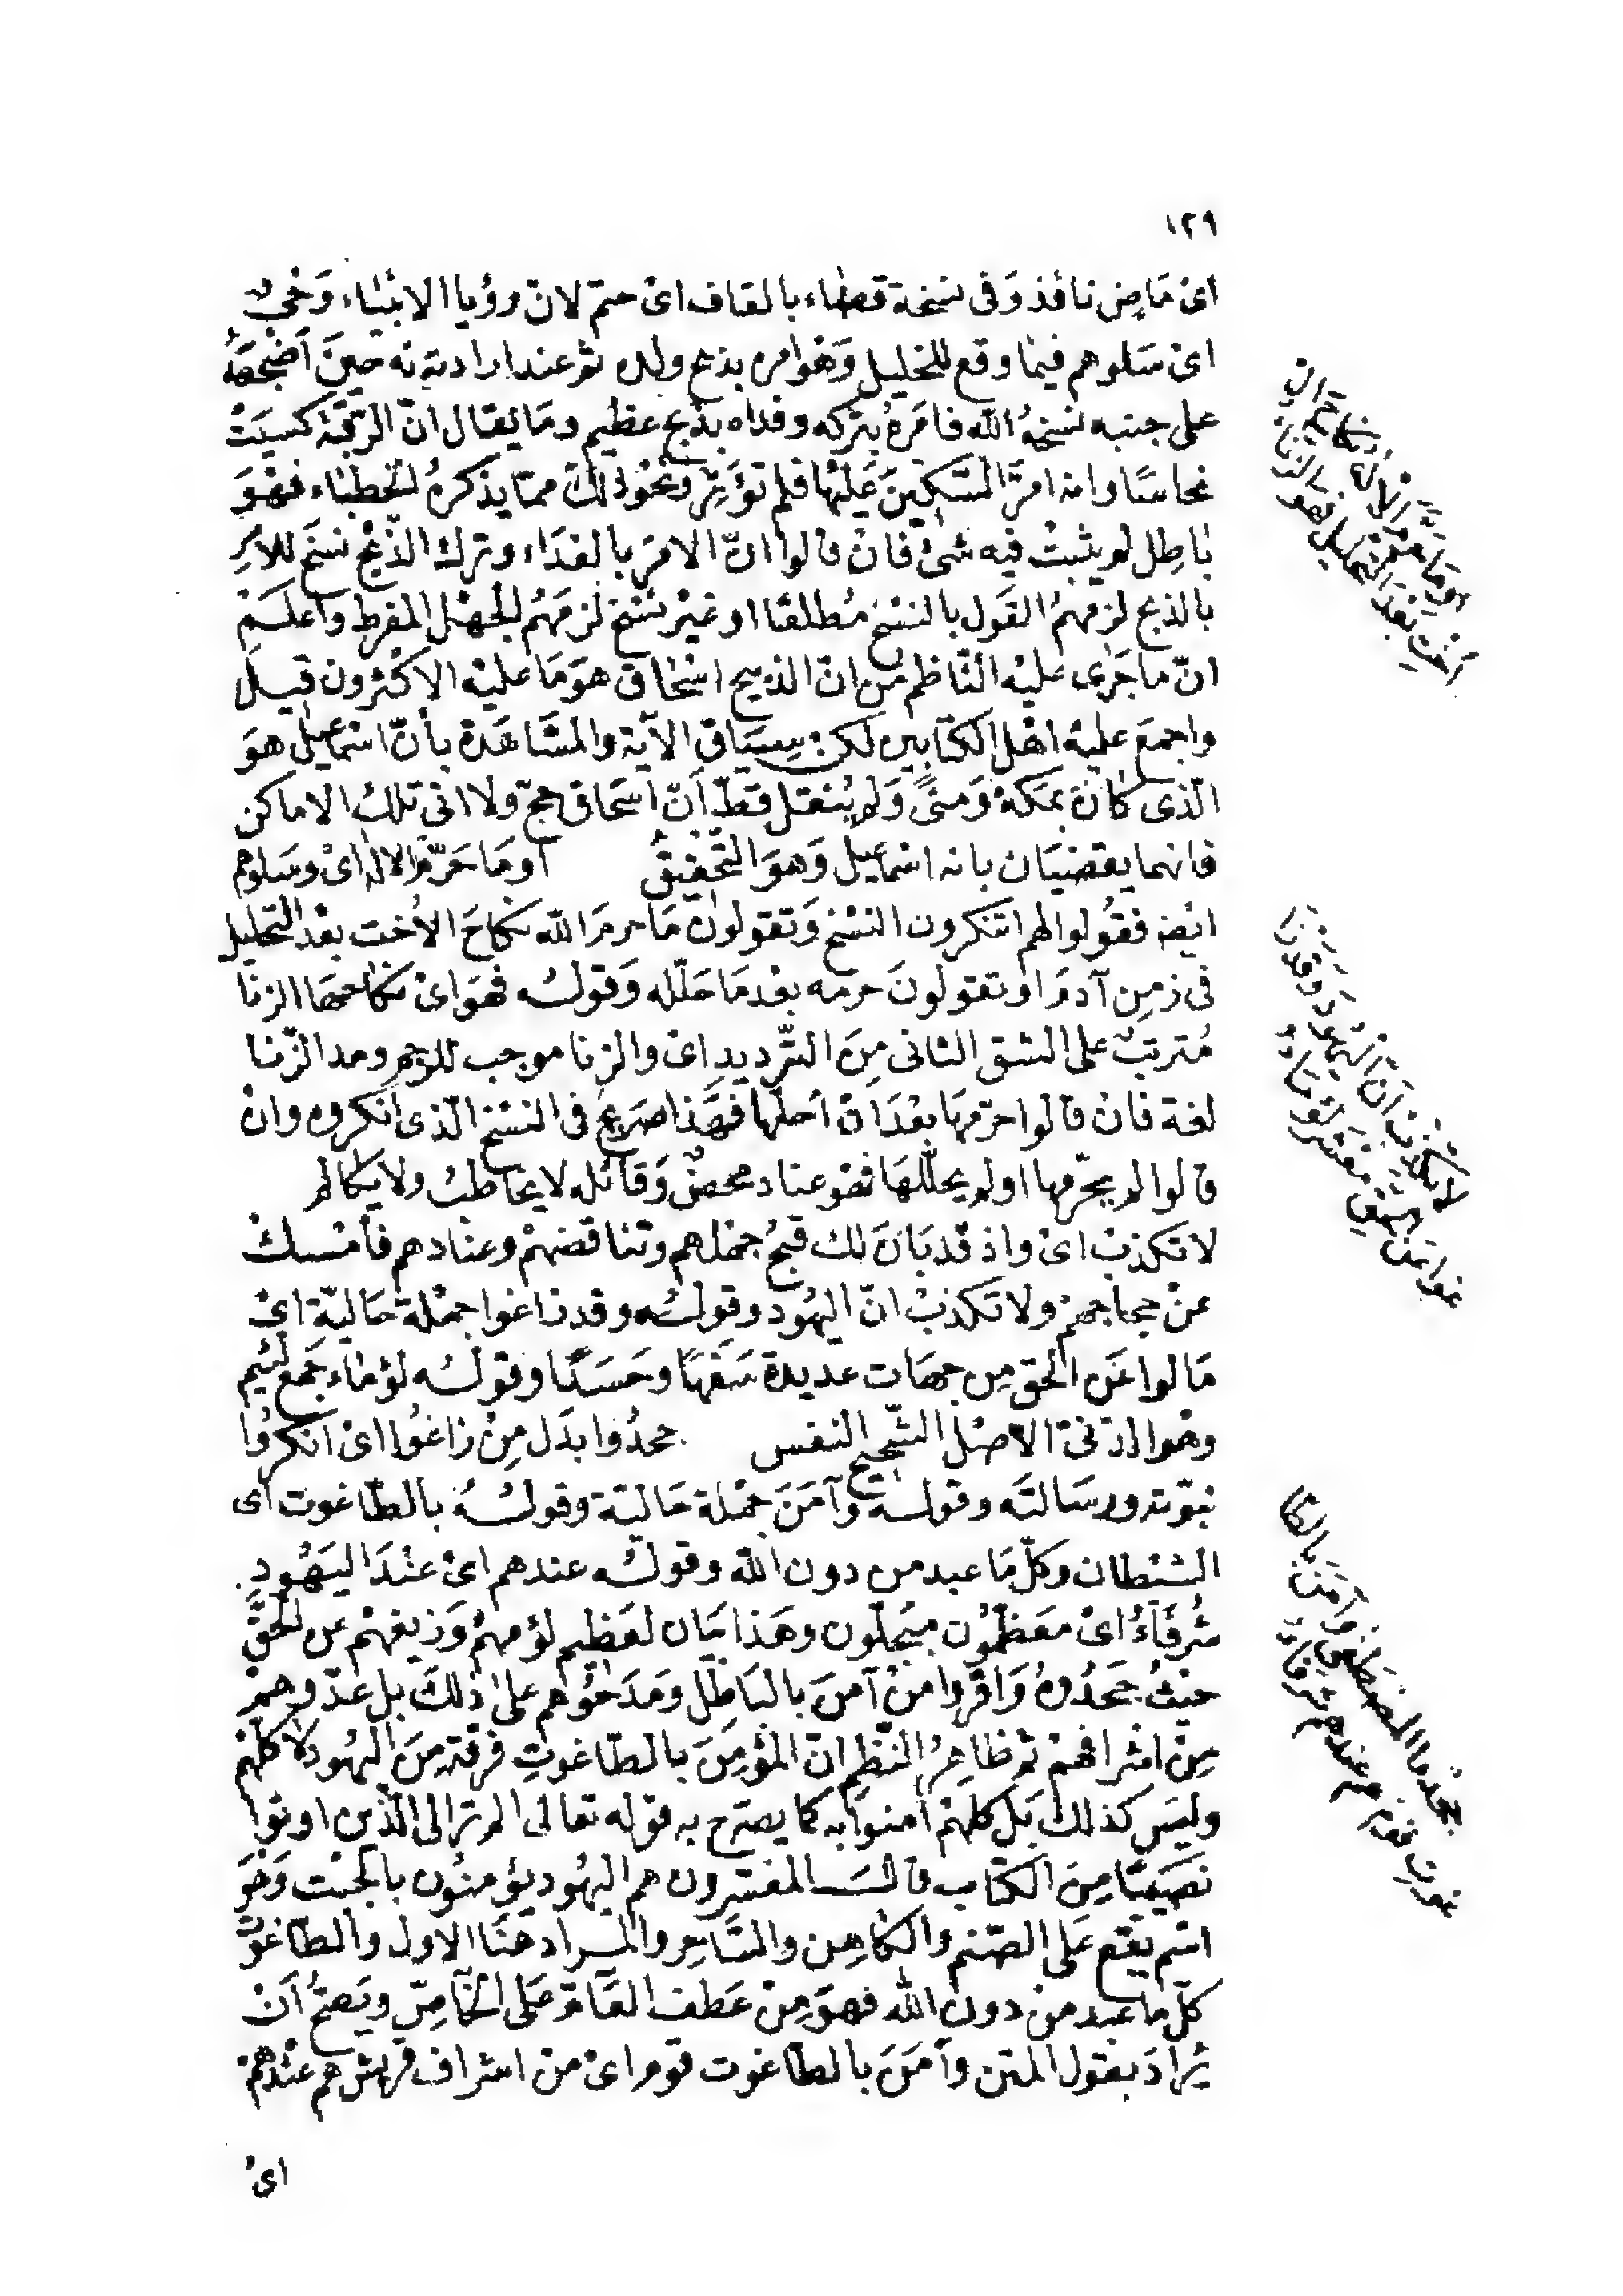 ١٢٩
اى مَاضٍ نافذ وَفى نسخة قضاء بالقاف اى حتم لانّ رؤيا الانبياء وَحْىٌ
اى سَلوهم فيما وقع للخليل وَهْوَ امره بذبح ولده ثم عند ارادته حِينَ اَضْجَعَهُ
على جنبه نسخهُ الله فامَرهُ بتركه وفداه بذبح عظيم ومَا يُقال انّ الرقبة كسِيَتْ
نحاسًا وانه امرَّ السّكينَ عَلَيْها فلم تؤَثِّر ونحْو ذلك ممّا يذكرهُ الخطبَاء فهْوَ
بَاطِل لم يثبتْ فيه شىْ فانْ قالوا انّ الامَر بالفداء وترك الذّبح نسْخ للأمرِ
بالذبح لزمهمُ القَول بالنسْخ مُطلقًا او غيْر نسْخ لزمَهُم الجهْل المفرط واعلَم
انّ ما جَرَى عليْه النَّاظم من انّ الذبيح اسْحَاق هوَ مَا عليْه الاكْثرون قيلَ
واجمعَ عليْه اهْل الكتابين لكن سِيَاق الآية والمشَاهَدة بأنّ اسْمٰعيل هوَ
الّذى كانَ بمَكة وَمنًى وَلم يُنقل قطّ أَنّ اسحَاق حجّ ولا اتى تلكَ الاماكن
فانهما يقضيَان بانه اسْمٰعيل وَهوَ التّحْقيقُ اومَا حَرّمَ الالٰه اىْ وسَلوهم
ايْضا فقُولوا لهم اتنكرون النسْخ وَتقولون مَا حرمَ الله نكاحَ الأخت بعْد التحليل
فى زمِن آدمَ او تقولونَ حرمه بعْد مَا حَلّله وَقولُـه فهوَ اىْ نكاحهَا الزنا
مُترتبٌ على الشق الثانى مِنَ التّرديدِ اىْ والزنا موجب للرجم ومد الزّنا
لغة فانْ قالوا حرّمهَا بعْدَ ان أحلّها فهَذا صَرِيح فى النسْخ الّذى انكروه وانْ
قالوا لم يحرّمها او لم يحلّلهَا فهْو عناد محضٌ وَقائله لا يخاطبُ ولا يكالم
لا تكذبْ اىْ واذ قدْ بَانَ لك قبحُ جهْلهم وتنَاقضهمْ وعنادهم فأمْسكْ
عنْ حجاجهمْ ولا تكذبْ انّ اليهُود وقولُـه وقد زاغوا جمْلة حَاليّة اىْ
مَالوا عَن الحَق مِن جهَات عديدة سَفَهًا وحَسَدًا وقولُـه لؤماء جَمع لئيم
وهْو الدّنىّ الاصْل الشّحيح النفس جحدُوا بدَل مِنْ زاغُوا اىْ انكرُوا
نبوّته ورسَالتَه وقولـه وآمَنَ جمْلة حَاليّة وقولـُهُ بالطّاغوت اى
الشيْطان وكلّ مَا عبد من دون الله وقولُه عندهم اىْ عنْدَ اليَهُود
شُرفَاءُ اىْ معَظّمُون مبَجّلون وهَذا بيَان لعَظِيم لؤمهمْ وَزيغهمْ عن الحَقّ
حيْثُ جحَدُوهُ وَاقرّوا منْ آمَن بالبَاطِل ومَدَحُوهم على ذٰلكَ بل عدّوهمْ
مِنْ اشرافهمْ ثم ظاهِرُ النّظمِ انّ المؤْمِنَ بالطّاغوتِ فرقة مِنَ اليهُود لا كلهُم
وليسَ كذلكَ بَل كلهمْ آمنوا به كما يصرّح به قوله تعالى الم ترَ الى الّذين اوتوا
نصيبًا مِنَ الكتاب قالَ المفسّرون هم اليهُود يؤمنُون بالجبْت وَهْوَ
اسْم يقع عَلى الصّنم والكاهِن والسَّاحِر والمراد هنَا الاول والطّاغوت
كلّ ما عبد منْ دون الله فهوَ مِنْ عَطف العَامّ عَلى الخاصّ ويَصحُّ أنْ
يُرادَ بقول المتن وآمَنَ بالطّاغوت قوم اىْ منْ اشراف قريْش هم عنْدهمْ
اىْ
اومَا حَرَّمَ الالٰه نكاحَ ال
اُخْتِ بَعْدَ التحْليل فهو الزناء
لا تكذّبْ اَنّ اليَهُودَ وقدْ زَا
غوا عَنِ الحَقِّ مَعْشر لؤمَاءُ
جحَدُوا المصْطفى وَآمَنَ بالطا
غوتِ قوْم هم عِندهم شُرفَاءُ